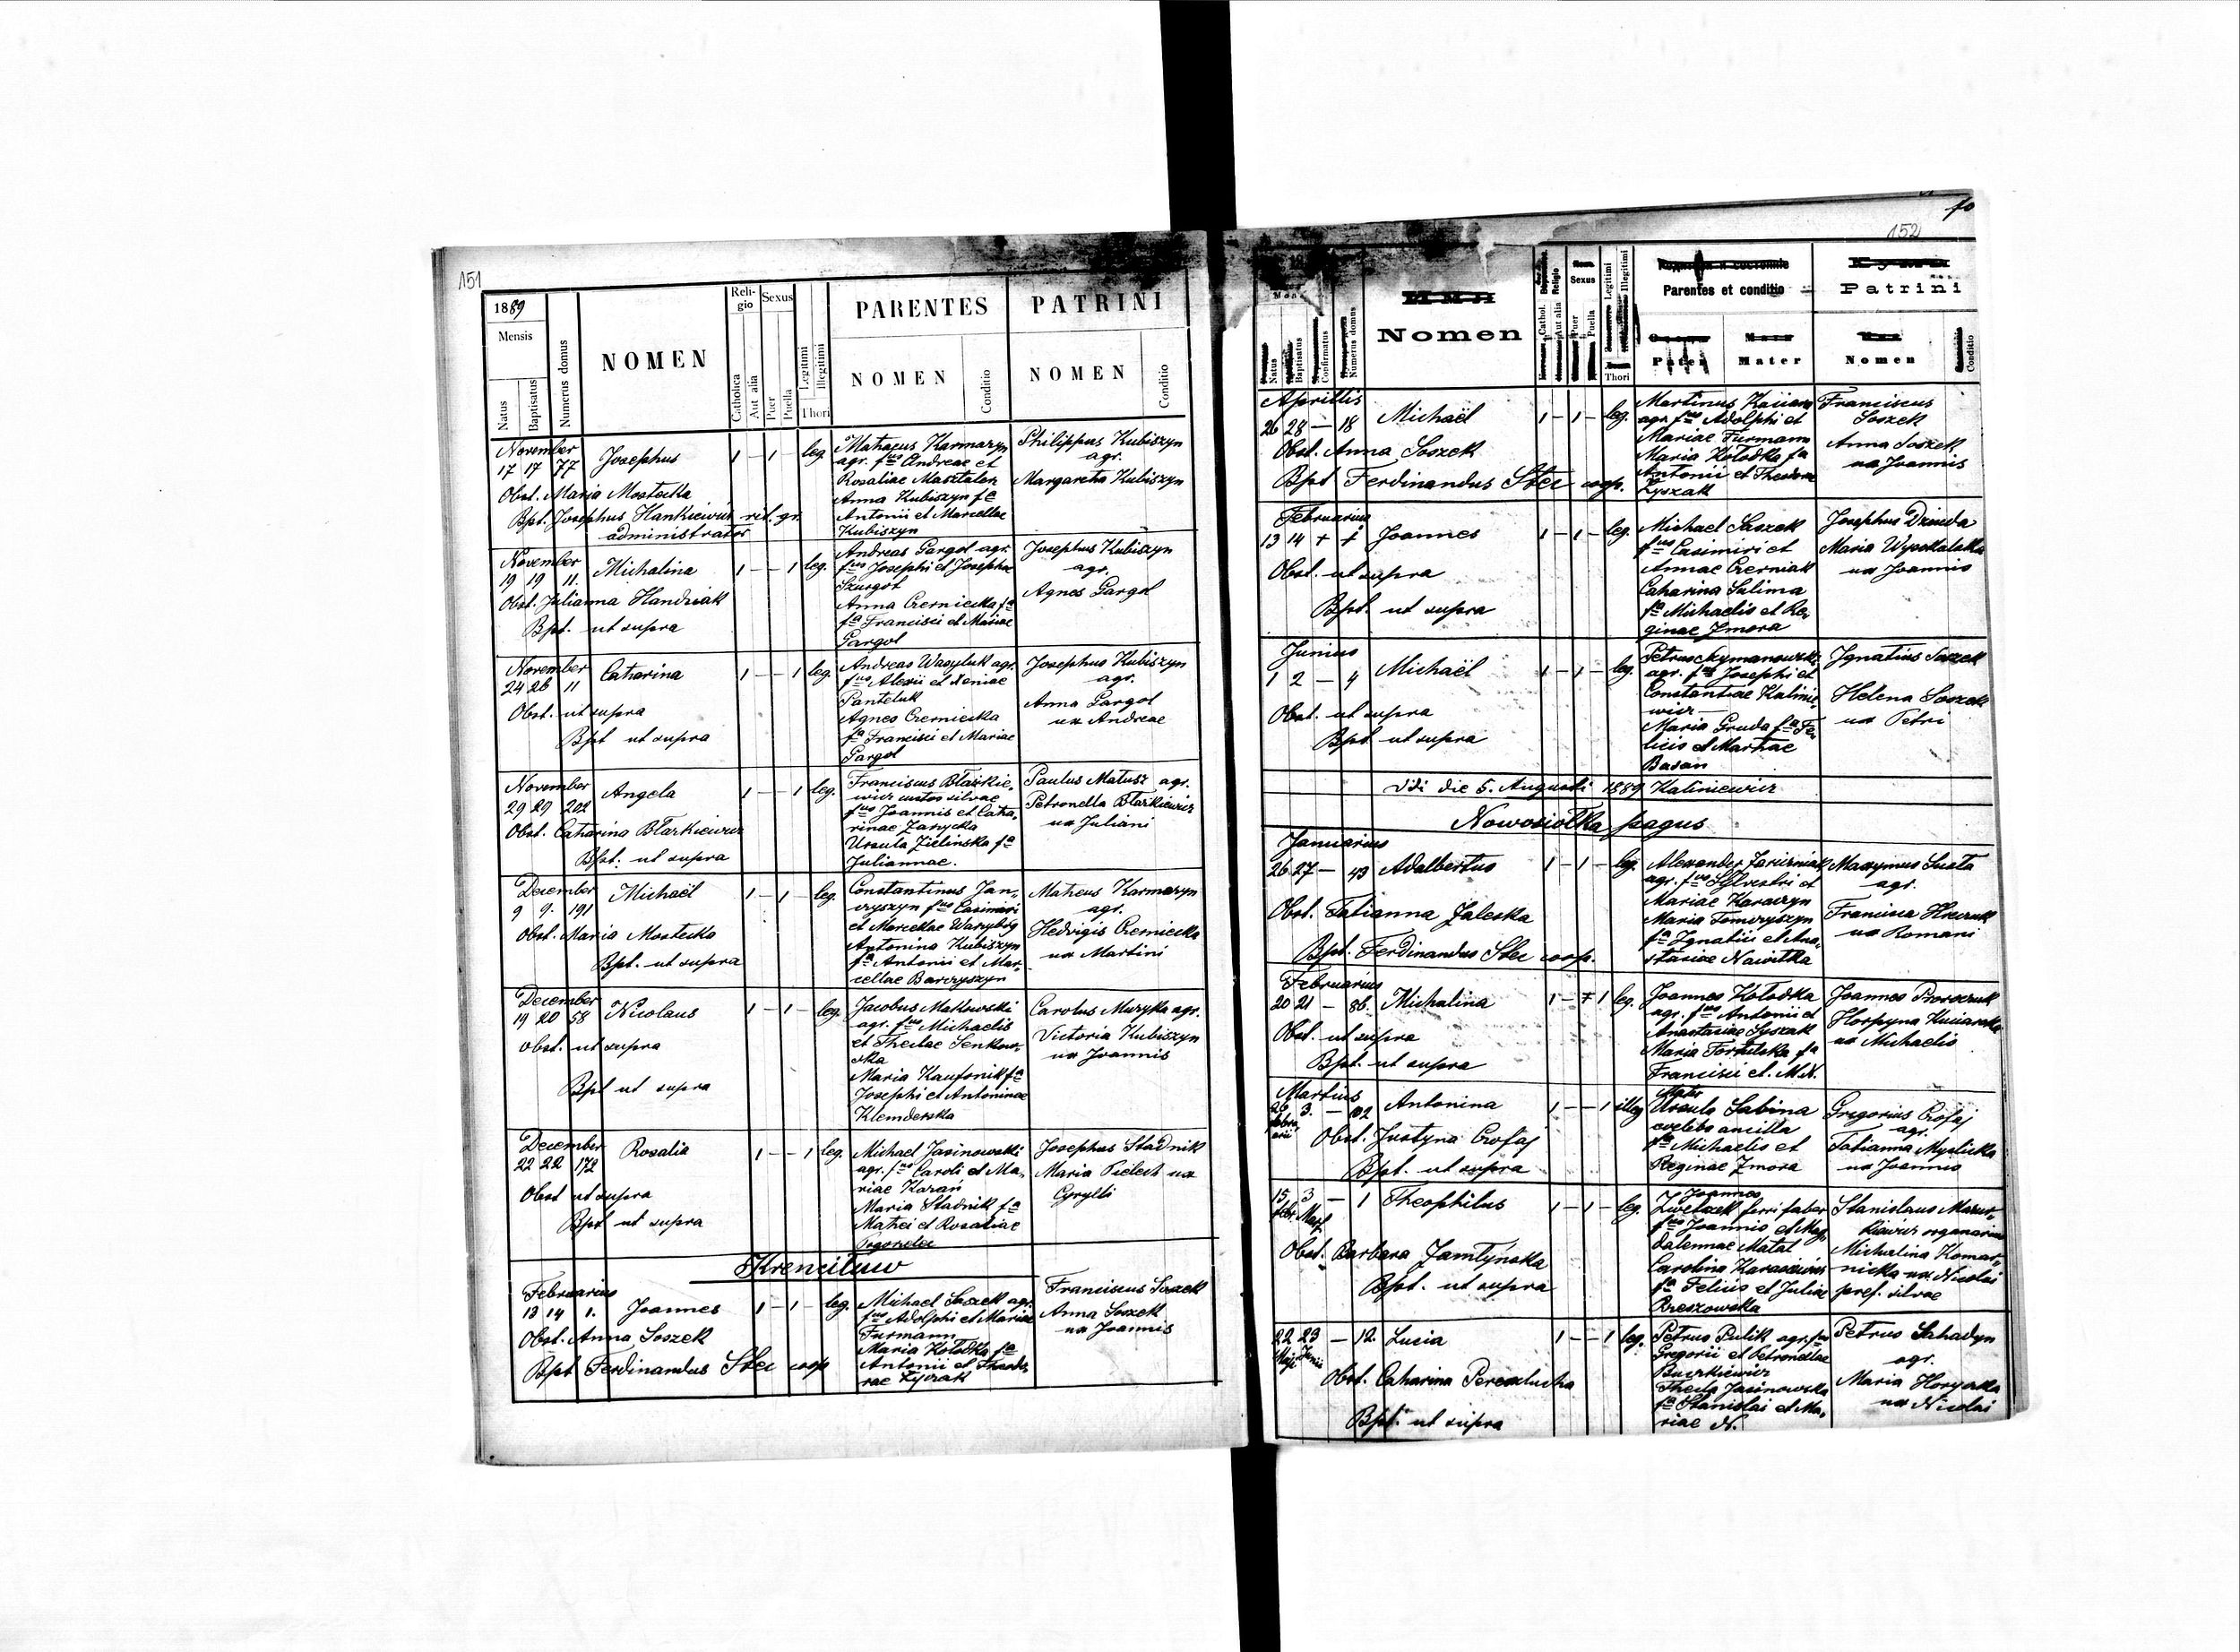 151
1889
Mensis
Natus
Baptisatus
Numerus domus
NOMEN
Reli-
gio
Catholica
Aut alia
Sexus
Puer
Puella
Legitimi
Illegitimi
Thori
PARENTES
NOMEN
Conditio
PATRINI
NOMEN
Conditio
November
17 17 77 Josephus 1 – 1 – leg.
Obst. Maria Mostecka
Bpt. Josephus Hankiewicz rit. gr.
administrator
Mathaeus Karmazyn
agr. fus Andreae et
Rosaliae Masztaler
Anna Kubiszyn fa
Antonii et Marcellae
Kubiszyn
Philippus Kubiszyn
agr.
Margaretha Kubiszyn
November
19 19 11. Michalina 1 – – 1 leg.
Obst. Julianna Handziak
Bpt. ut supra
Andreas Gargol agr.
fus Josephi et Josephae
Szurgot
Anna Czerniecka fa
fa Francisci et Mariae
Gargol
Josephus Kubiszyn
agr.
Agnes Gargol
November
24 26 11 Catharina 1 – – 1 leg.
Obst. ut supra
Bpt ut supra
Andreas Wasyluk agr.
fus Alexii et Xeniae
Panteluk
Agnes Czerniecka
fa Francisci et Mariae
Gargol
Josephus Kubiszyn
agr.
Anna Gargol
ux Andreae
November
29 29 202 Angela 1 – – 1 leg.
Obst. Catharina Błazkiewicz
Bpt. ut supra
Franciscus Błazkie-
wicz custos silvae
fus Joannis et Catha-
rinae Zarycka
Ursula Zielinska fa
Juliannae.
Paulus Matusz agr.
Petronella Błazkiewicz
ux Juliani
December
9 9. 191 Michaël 1 – 1 – leg.
Obst. Maria Mostecka
Bpt. ut supra
Constantinus Jan-
czyszyn fus Casimiri
et Marcellae Warybóg
Antonina Kubiszyn
fa Antonii et Mar-
cellae Barczyszyn
Matheus Karmazyn
agr.
Hedvigis Czerniecka
ux Martini
December
19 20 58 Nicolaus 1 – 1 – leg.
Obst. ut supra
Bpt ut supra
Jacobus Małkowski
agr. fus Michaelis
et Theclae Senkow-
ska
Maria Kaufonik fa
Josephi et Antoninae
Klemderska
Carolus Muzyka agr.
Victoria Kubiszyn
ux Joannis
December
22 22 172 Rosalia 1 – – 1 leg.
Obst ut supra
Bpt ut supra
Michael Jasinowski
agr. fus Caroli et Ma-
riae Karań
Maria Stadnik fa
Mathei et Rosaliae
Pogorzelec
Josephus Stadnik
Maria Pielech ux
Cyrylli
Krenciłuw
Februarius
13 14 1. Joannes 1 – 1 – leg.
Obst. Anna Soszek
Bpt Ferdinandus Stec coop
Michael Saszek agr.
fus Adolphi et Mariae
Furmann
Maria Kołodka fa
Antonii et Theodo-
rae Łyszak
Franciscus Soszek
Anna Soszek
ux Joannis
152
Natus
Baptisatus
Confirmatus
Numerus domus
Nomen
Religio
Cathol.
Aut alia
Sexus
Puer
Puella
Legitimi
Illegitimi
Thori
Parentes et conditio
Pater
Mater
Patrini
Nomen
Conditio
Aprillis
26 28 – 18 Michaël 1 – 1 – leg.
Obst. Anna Soszek
Bpt Ferdinandus Stec coop.
Martinus
agr. fus Adolphi et
Mariae Furmann
Maria Kołodka fa
Antonii et Theodorae
Łyszak
Franciscus
Soszek
Anna Soszek
ux Joannis
Februarius
13 14 + + Joannes 1 – 1 – leg.
Obst. ut supra
Bpt. ut supra
Michael Saszek
fus Casimiri et
Annae Czerniak
Catharina Sulima
fa Michaelis et Re-
ginae Zmora
Josephus Dziuda
Maria Wysokalska
ux Joannis
Junius
1 2 – 4 Michaël 1 – 1 – leg.
Obst. ut supra
Bpt. ut supra
Petrus Szymanowski
agr. fus Josephi et
Constantiae Kalinie-
wicz
Maria Gruda fa Fe-
licis et Marthae
Basan
Ignatius Soszek
Helena Soszek
ux Petri
Vidi die 5. Augusti 1889 Kaliniewicz
Nowosiołka pagus
Januarius
26 27 – 43 Adalbertus 1 – 1 – leg.
Obst. Tatianna Zaleska
Bpt. Ferdinandus Stec coop.
Alexander
agr. fus Sylvestri et
Mariae Karaczyn
Maria Tomczyszyn
fa Ignatii et Ana-
stasiae Nawitka
Maxymus Suta
agr.
Francisca
ux Romani
Februarius
20 21 – 86. Michalina 1 – 1 leg.
Obst. ut supra
Bpt. ut supra
Joannes Kołodka
agr. fus Antonii et
Anastasiae Łyszak
Maria fa
Francisci et. M.N.
Joannes
Horpyna
ux Michaelis
Martius
26 3. – 102 Antonina 1 – – 1 illeg
Obst. Justyna Crofaj
Bpt. ut supra
Mater
Ursula Sabina
coelebs ancilla
fa Michaelis et
Reginae Zmora
Gregorius Crofaj
agr.
Tatianna Myslicka
ux Joannis
15 3 – 1 Theophilus 1 – 1 – leg.
Febr. Mart
Obst. Barbara Jamłynska
Bpt. ut supra
Joannes
ferri faber
fus Joannis et Mag-
dalennae Matał
Carolina Karasiewicz
fa Felicis et Juliae
Brzeszowska
Stanislaus Mazur-
kiewicz organarius
Michalina Komar-
nicka ux. Nicolai
praef. silvae
22 23 – 12. Lucia 1 – – 1 leg.
Maji Junii
Obst. Catharina Perealucha
Bpt. ut supra
Petrus Pulik agr. fus
Gregorii et Petronellae
Buczkiewicz
Thecla Jasinowska
fa Stanislai et Ma-
riae N.
Petrus Sahadyn
agr.
Maria
ux Nicolai